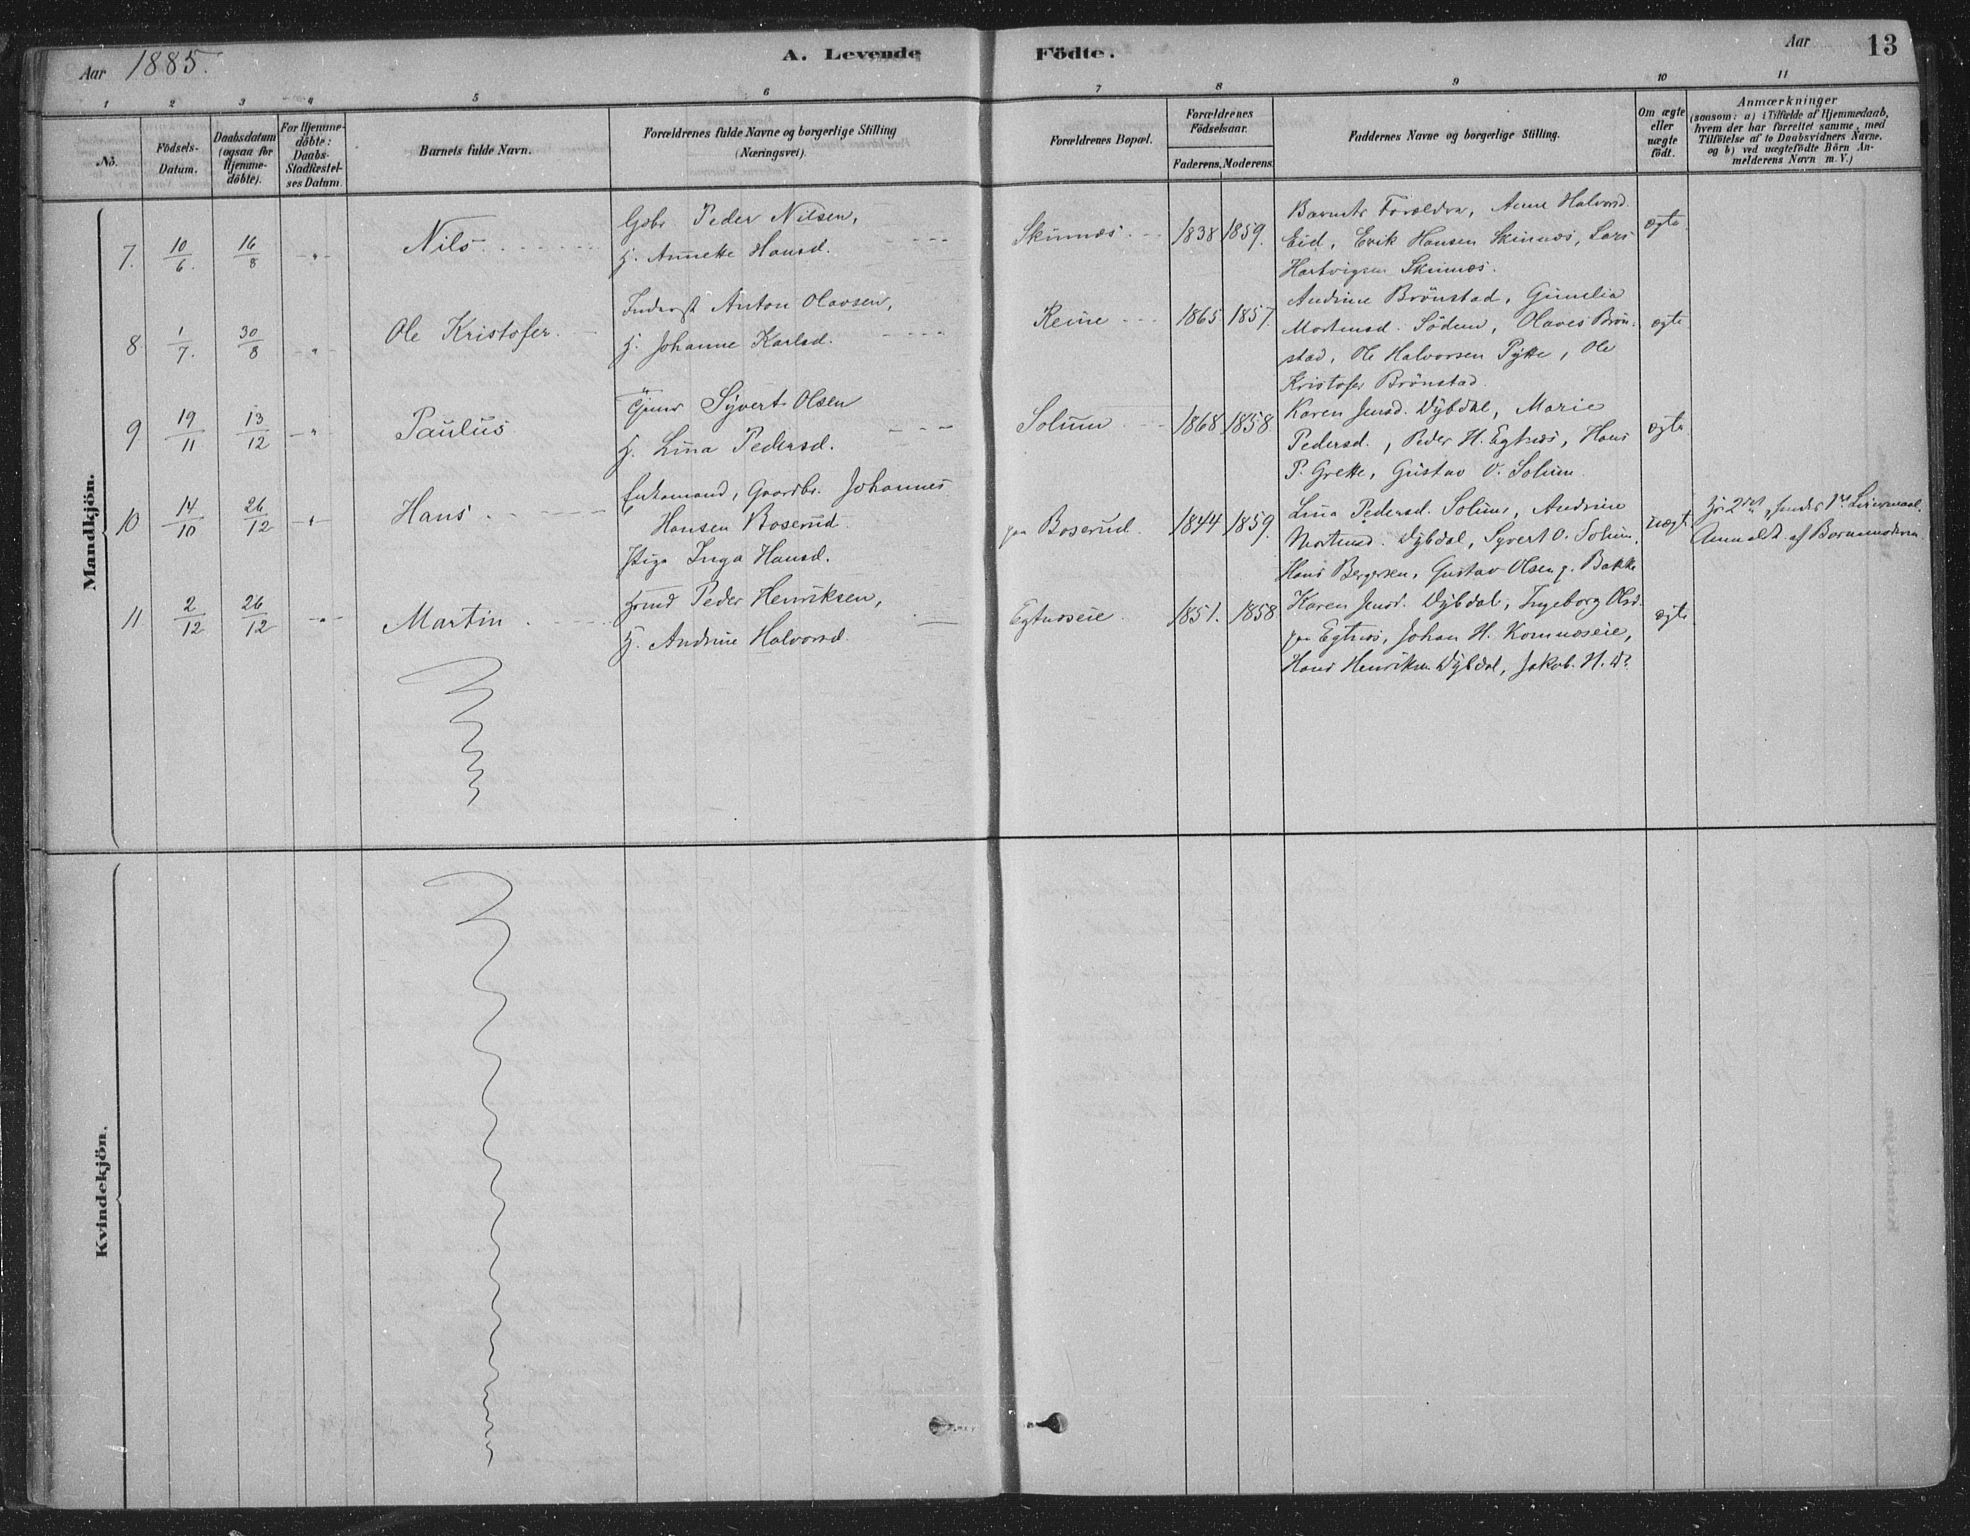 Aar 1885.
A. Levende Födte.
Aar
13
1 2 3 4 5 6 7 8 9 10 11
No.
Födsels-
Datum.
Daabsdatum
(ogsaa for
Hjemme-
döbte).
For Hjemme-
döbte:
Daabs-
Stadfæstel-
ses Datum.
Barnets fulde Navn.
Forældrenes fulde Navne og borgerlige Stilling
(Næringsvei).
Forældrenes Bopæl.
Forældrenes
Födselsaar.
Faderens. Moderens.
Faddernes Navne og borgerlige Stilling.
Om ægte
eller
uægte
födt.
Anmærkninger
(saasom: a) i Tilfælde af Hjemmedaab,
hvem der har forrettet samme, med
Tilföielse af to Daabsvidners Navne,
og b) ved uægtefödte Börn An-
melderens Navn m. V.)
Mandkjön.
7. 10/6. 16/8 Nils
Gdbr Peder Nilsen,
H. Annette Hansd.
Skinnæs 1838 1859.
Barnets Forældre, Anne Halvorsd.
Eid, Erik Hansen Skinnæs, Lars
Hartvigsen Skinnæs.
ægte
8. 1/7. 30/8 Ole Kristofer
Inderst Anton Olavsen,
H. Johanne Karlsd.
Reine 1865 1857.
Andrine Brönstad, Gunelia
Mortensd. Södem, Olaves Brön-
stad, Ole Halvorsen Pytte, Ole
Kristofer Brönstad.
ægte
9 19/11 13/12 Paulus
Syvert Olsen
H. Lina Pedersd.
Solum 1868 1858
Karen Jensd. Dybdal, Marie
Pedersd., Peder H. Egtnæs, Hans
P. Grette, Gustav O. Solum.
ægte
10 14/10 26/12 Hans
Enkemand, Gaardbr. Johannes
Hansen Boserud.
Pige Inga Hansd.
paa Boserud. 1844 1859.
Lina Pedersd. Solum, Andrine
Mortensd. Dybdal, Syvert O. Solum,
Hans Bergersen, Gustav Olsen p. Bakke
uægt.
Anmeldt af Barnemoderen
11 2/12 26/12 Martin
Peder Henriksen,
H. Andrine Halvorsd.
Egtnæseie 1851. 1858
Karen Jensd. Dybdal, Ingeborg Olsd.
paa Egtnæs, Johan H. Komnæseie,
Hans Henriksen Dybdal, Jakob H. Do.
ægte
Kvindekjön.